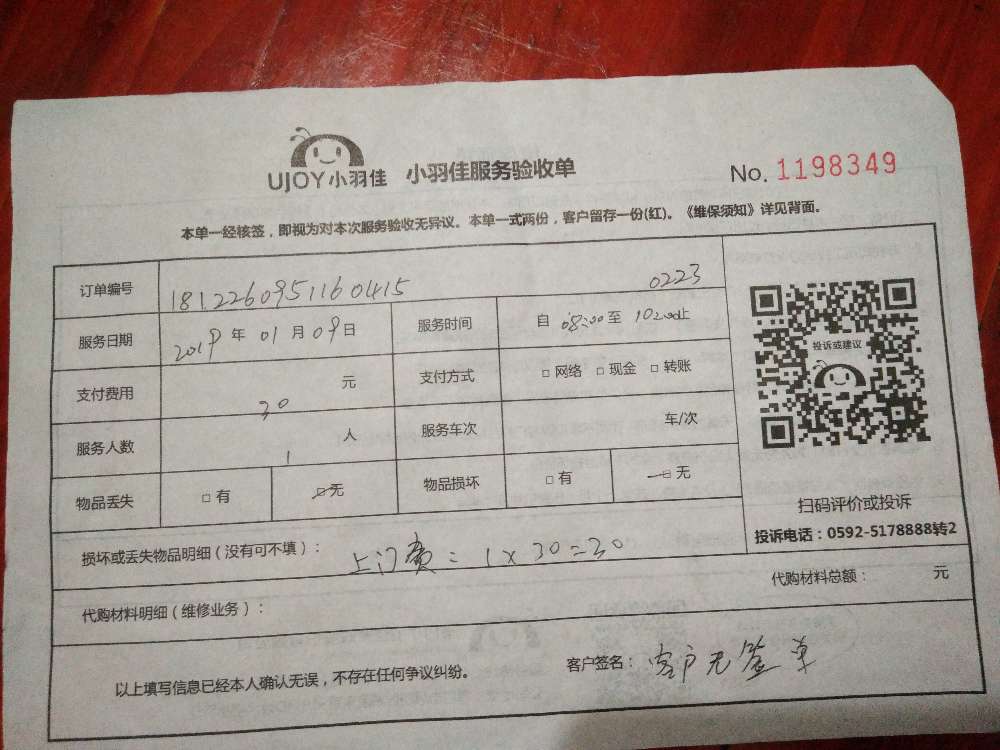 UJOY小羽佳 小羽佳服务验收单 No. 1198349
本单一经核签，即视为对本次服务验收无异议。本单一式两份，客户留存一份(红)。《维保须知》详见背面。
订单编号 1812260951160415 0223
服务日期 2019 年 01 月 09 日 服务时间 自 08:00 至 10:00 止
支付费用 30 元 支付方式 □ 网络 □ 现金 □ 转账
服务人数 1 人 服务车次 车/次
物品丢失 □ 有 □ 无 物品损坏 □ 有 □ 无
投诉或建议
扫码评价或投诉
投诉电话：0592-5178888转2
损坏或丢失物品明细（没有可不填）： 上门费：1×30=30
代购材料明细（维修业务）： 代购材料总额： 元
以上填写信息已经本人确认无误，不存在任何争议纠纷。 客户签名： 客户无签单